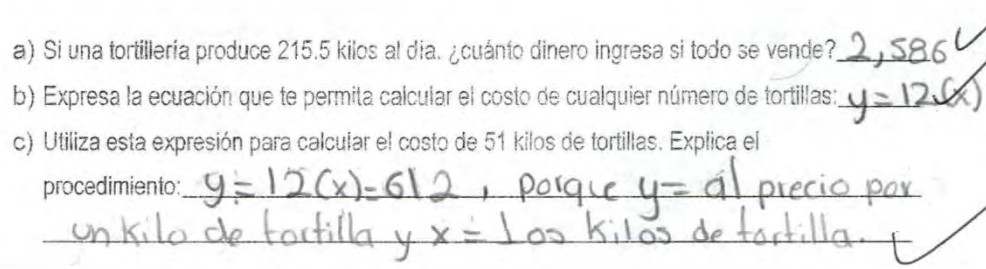 a) Si una tortillería produce 215.5 kilos al día. ¿cuánto dinero ingresa si todo se vende? 2,586
b) Expresa la ecuación que te permita calcular el costo de cualquier número de tortillas: y = 12(x)
c) Utiliza esta expresión para calcular el costo de 51 kilos de tortillas. Explica el
procedimiento: y = 12(x) = 612, porque y = al precio por
un kilo de tortilla y x = Los kilos de tortilla.